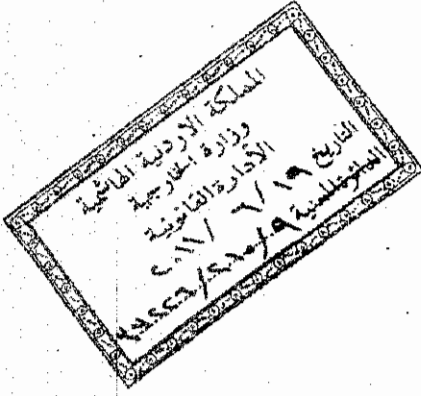 المملكة الاردنية الهاشمية
وزارة الخارجية
الأدارة القانونية
التاريخ ١٩/ ٦ /٢٠١١